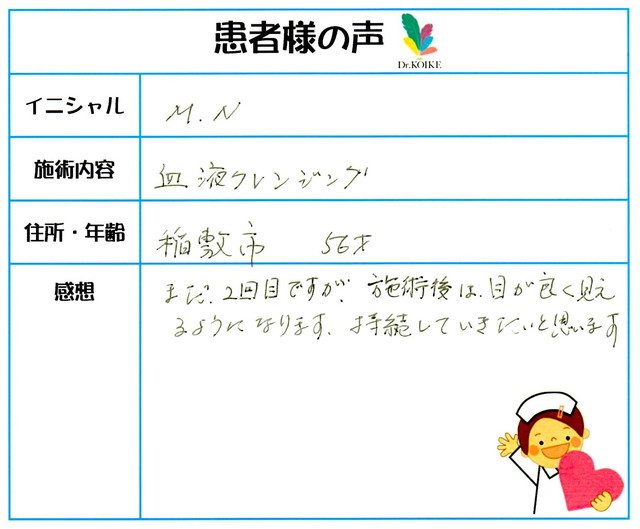 患者様の声
Dr.KOIKE
イニシャル
M.N
施術内容
血液クレンジング
住所・年齢
稲敷市 56才
感想
まだ、2回目ですが、施術後は、目が良く見え
るようになります、持続していきたいと思います